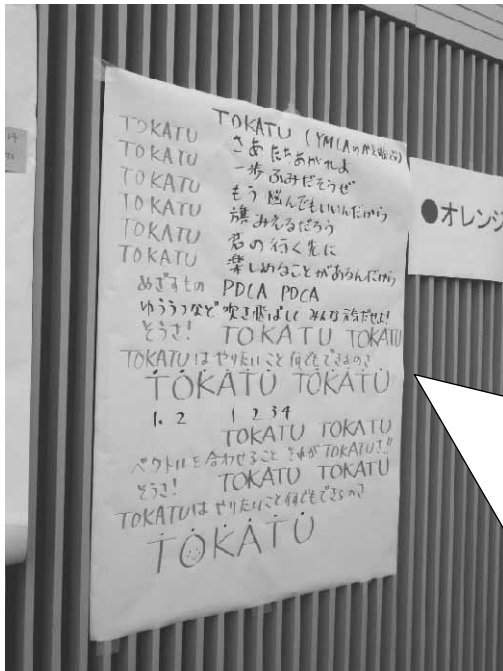 TOKATU (YMCAのかえ歌)
TOKATU さあ たちあがれよ
TOKATU 一歩 ふみだそうぜ
TOKATU もう 悩んでもいいんだから
TOKATU 旗 みえるだろう
TOKATU 君の行く先に
TOKATU 楽しめることがあるんだから
めざすもの PDCA PDCA
ゆううつなど 吹き飛ばして みんな 元気だせよ!
そうさ! TOKATU TOKATU
TOKATUは やりたいこと 何でもできるのさ
TOKATU TOKATU
1. 2 1 2 3 4
TOKATU TOKATU
ベクトルを合わせること それがTOKATUさ!!
そうさ! TOKATU TOKATU
TOKATUは やりたいこと何でもできるのさ
TOKATU
●オレンジ